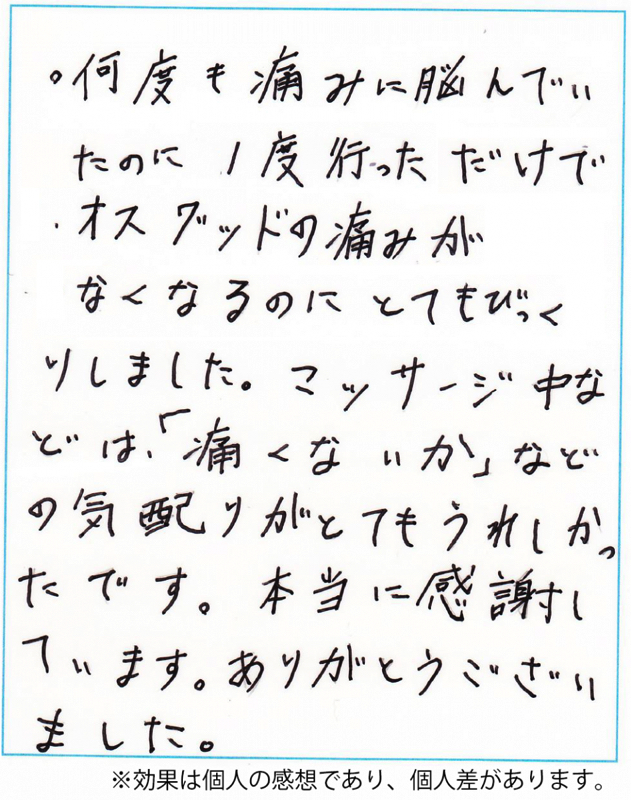 。何度も痛みに脳んでい
たのに1度行っただけで
・オスグッドの痛みが
なくなるのにとてもびっく
りしました。マッサージ中な
どは、「痛くないか」など
の気配りがとてもうれしかっ
たです。本当に感謝し
ています。ありがとうござい
ました。
※効果は個人の感想であり、個人差があります。